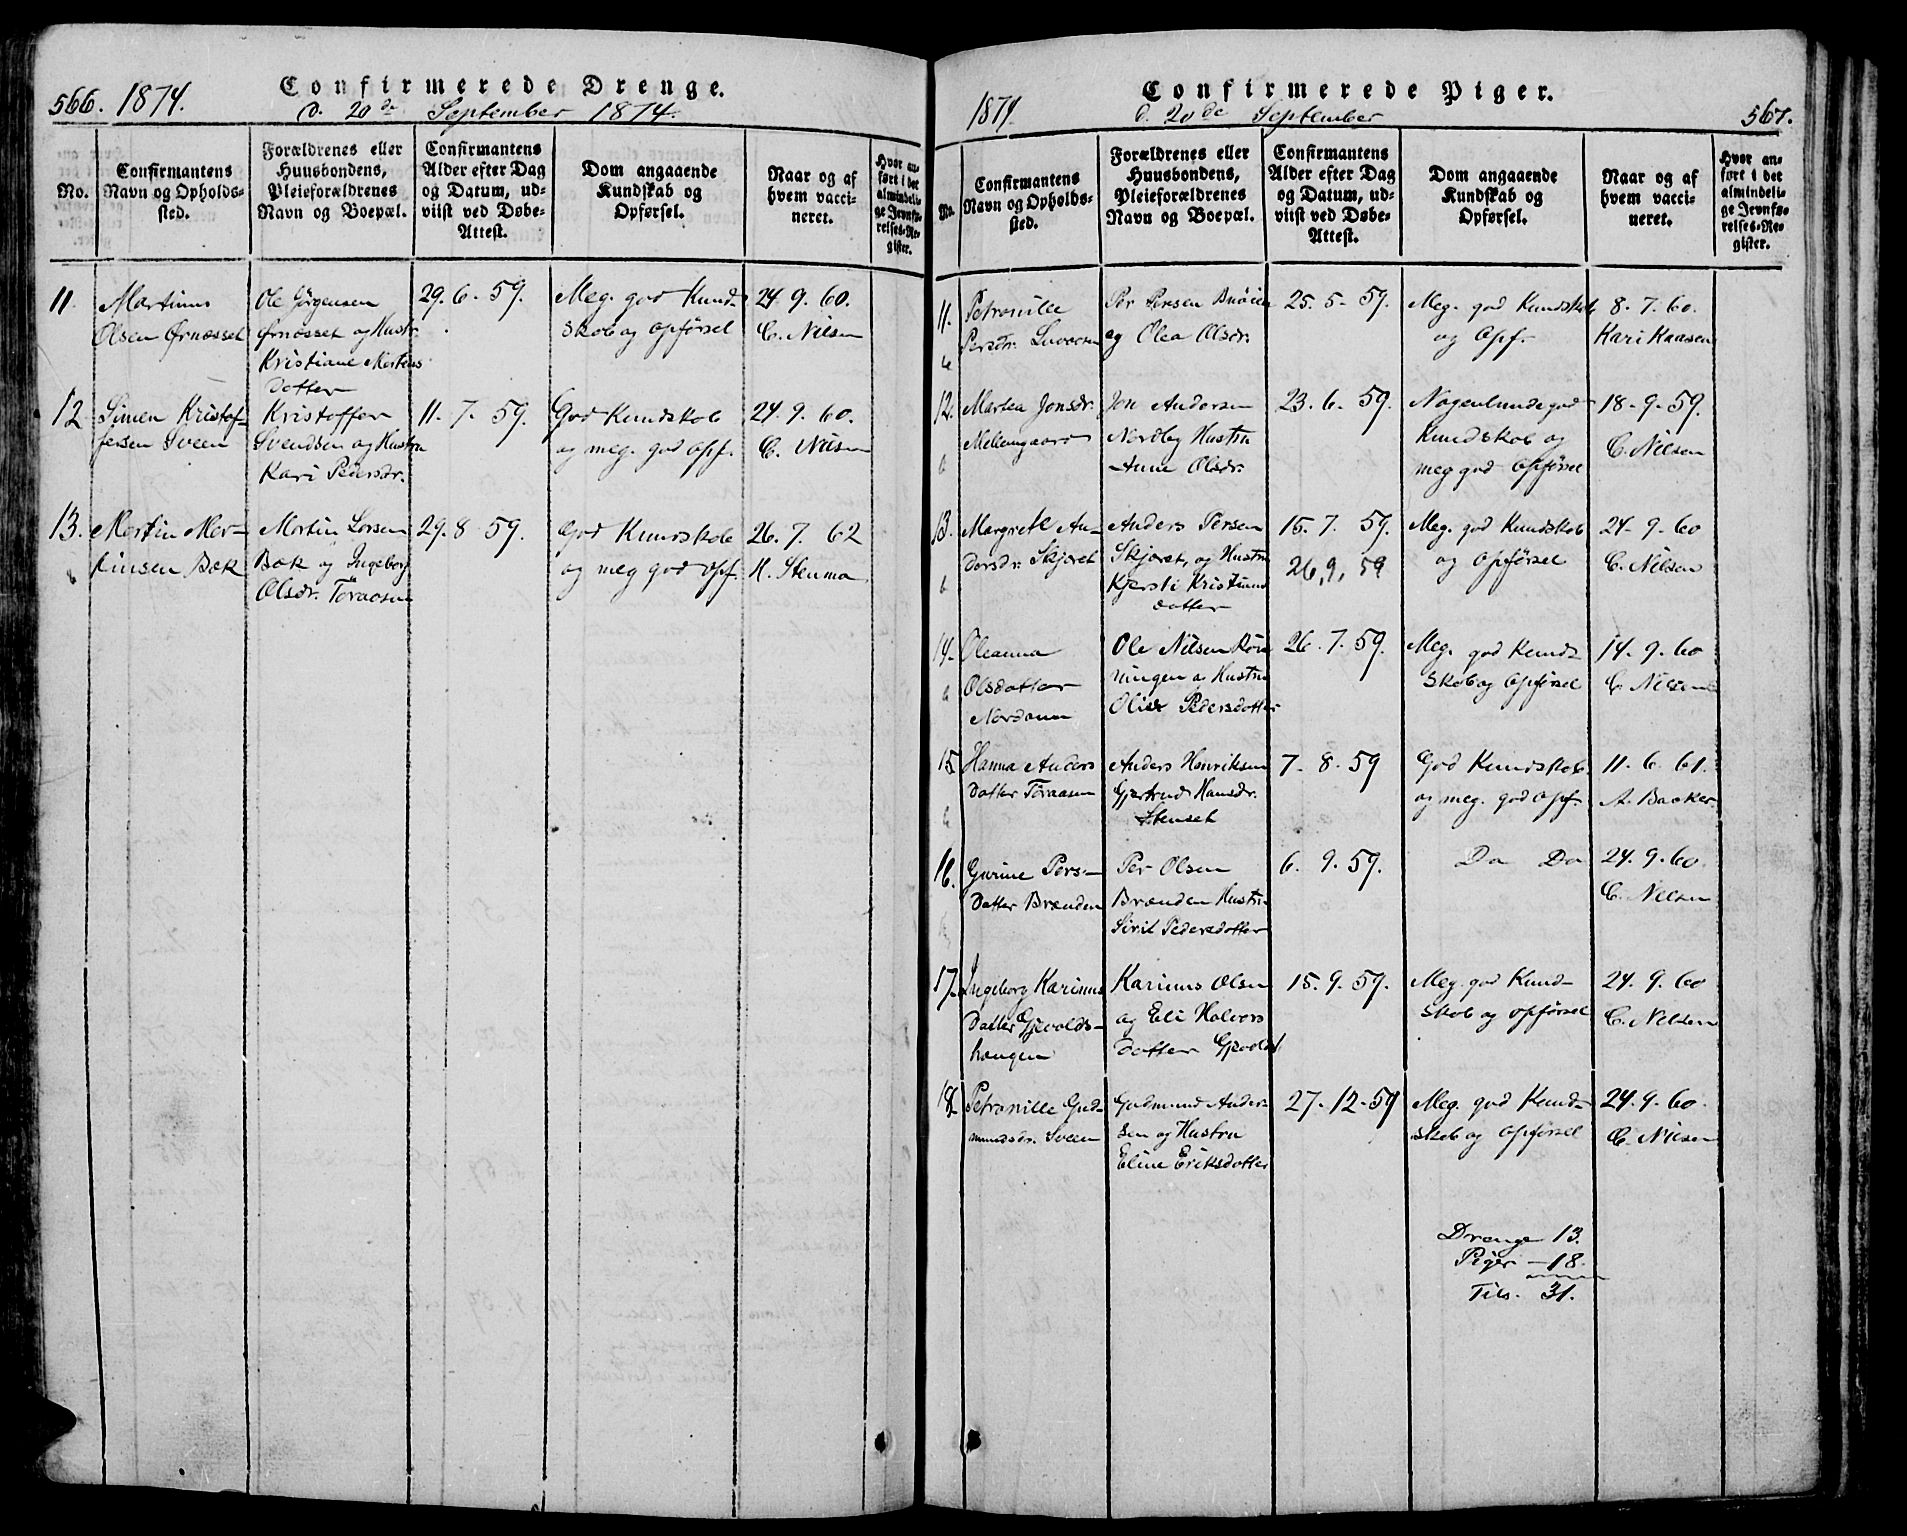 566. 1874. Confirmerede Drenge.
d. 20de September 1874.
No.
Confirmantens Navn og Opholdssted.
Forældrenes eller Huusbondens, Pleieforældrenes Navn og Boepæl.
Confirmantens Alder efter Dag og Datum, udviist ved Døbe-Attest.
Dom angaaende Kundskab og Opførsel.
Naar og af hvem vaccineret.
Hvor anført i det almindelige Jevnførelses-Register.
11. Martinus Ole Jørgensen 29. 6. 59. Meg. god Kund- 24 9. 60.
Olsen Ørnæsset Ørnæsset og Hustr. skab og Opførsel C. Nilsen
Kristiane Mortens
datter
12 Simen Kristof- Kristoffer 11. 7. 59. God Kundskab 24. 9. 60.
fersen Sveen Svendsen og Hustru og meg. god Opf. C. Nilsen
Kari Pedersdr.
13. Martin Mar- Martin Larsen 29. 8 59. God Kundskab 26. 7. 62
tinsen Bæk Bæk og Ingeborg og meg god Opf. H. Stenmo
Olsdr. Toraasen
1874. Confirmerede Piger. 567.
d. 20de September
No.
Confirmantens Navn og Opholdssted.
Forældrenes eller Huusbondens, Pleieforældrenes Navn og Boepæl.
Confirmantens Alder efter Dag og Datum, udviist ved Døbe-Attest.
Dom angaaende Kundskab og Opførsel.
Naar og af hvem vaccineret.
Hvor anført i det almindelige Jevnførelses-Register.
11. Petronille Per Persen 25. 5. 59. Meg. god Kundskab 8. 7. 60.
Persdr. og Olea Olsdr. og Opf. Kari Haasen
12. Martea Jonsdr. Jon Andersen 23. 6. 59. Nogenlunde god 18. 9. 59.
Mellemgaard Nordby Hustru Kundskab og C. Nilsen
Anne Olsdr. meg god Opførsel
13. Margrete An- Anders Persen 15. 7. 59. Meg. god Kundskab 24. 9. 60
dersdr. Skjæret Skjæret, og Hustru 26, 9, 59 og Opførsel C. Nilsen
Kjersti Kristians
datter
14. Oleanna Ole Nilsen 26. 7. 59. Meg. god Kund- 14. 9. 60
Olsdatter ningen og Hustru skab og Opførsel C. Nilsen
Nordaun Olise Pedersdatter
15. Hanna Anders Anders Henriksen 7. 8. 59 God Kundskab 11. 6. 61.
datter Toraasen Gjertrud Hansdr. og meg. god Opf. A. Baaker
Stenset
16. Gurine Pers- Per Olsen 6. 9. 59. Do Do 24. 9. 60
datter Brænden Brænden Hustru C. Nilsen
Siril Pedersdatter
17. Ingeborg Karinus Karinus Olsen 15. 9. 59. Meg. god Kund- 24. 9. 60
datter Gjevolds- og Eli Halvors skab og Opførsel C. Nilsen
haugen datter Gjevolds
18. Petronille Gud- Gudmund Ander- 27. 12. 59 Meg. god Kund- 24. 9. 60.
mundsdr. Sveen sen og Hustru skab og Opførsel C. Nilsen
Eline Eriksdatter
Drenge 13.
Piger - 18.
Tils. 31.